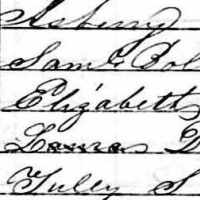 Asbury
Sam¹ Bol
Elizabeth
Laura D
Tully S